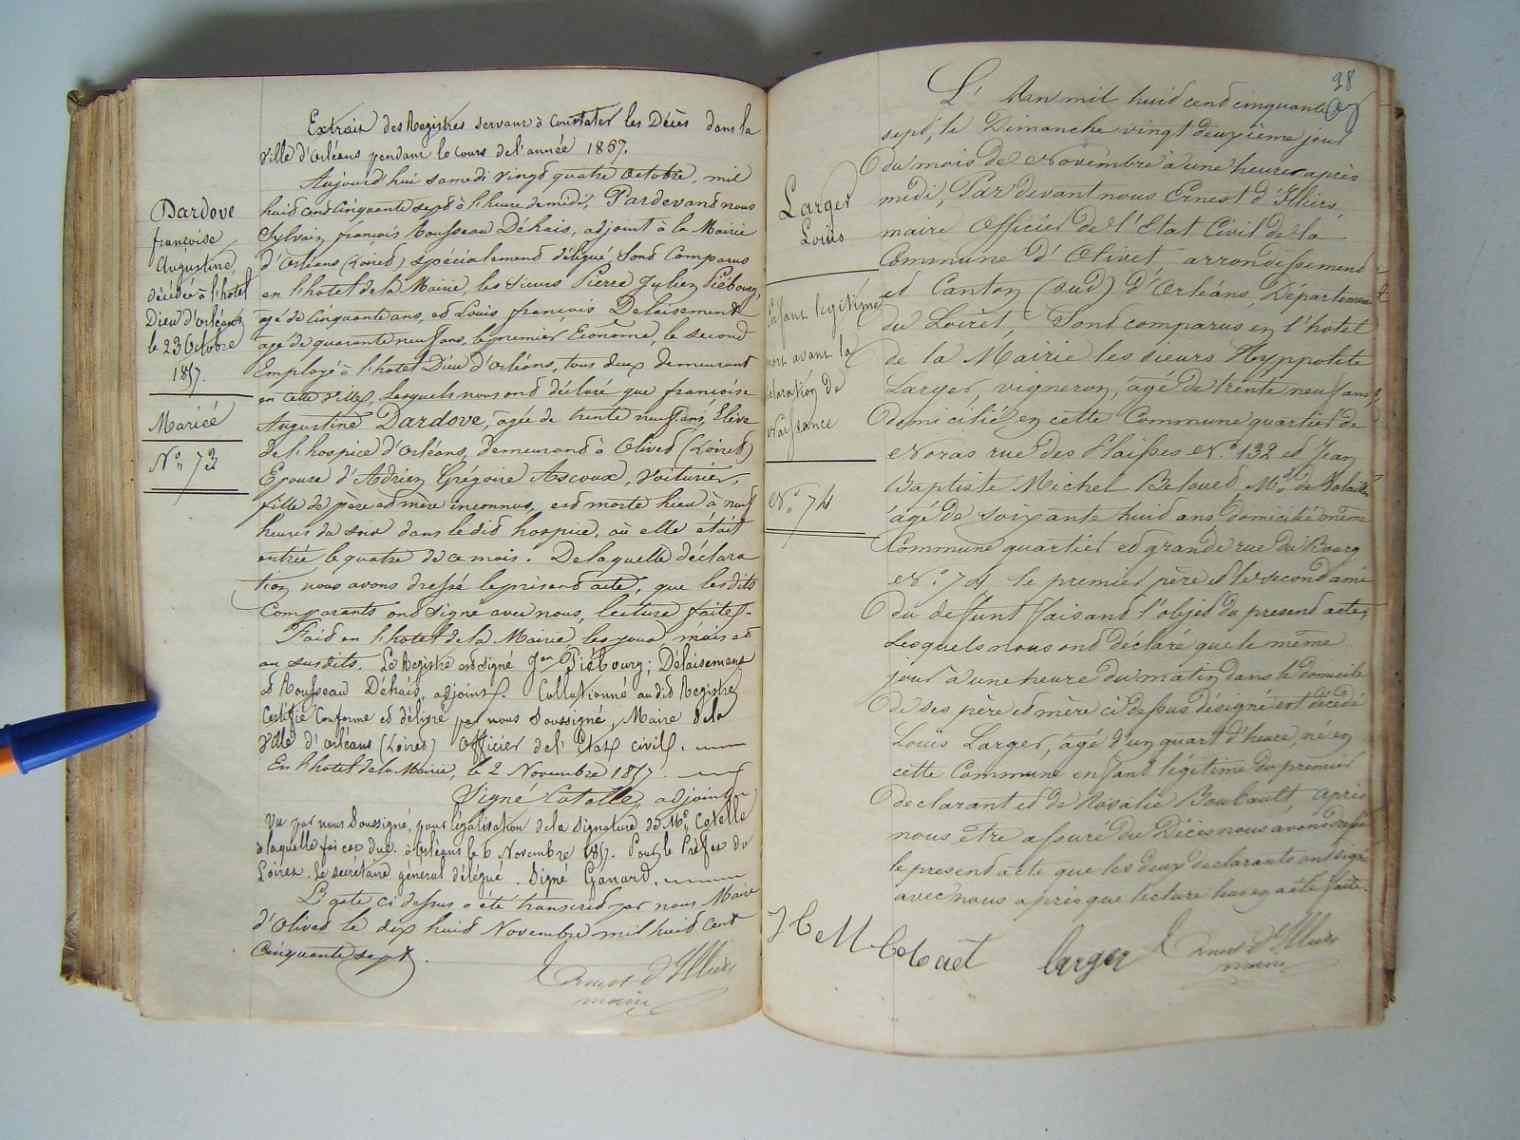 Dardove
françoise
Augustine,
décédée à l'hotel
Dieu d'orléans
le 23 Octobre
1857.
Mariée
N.º 73
Extrait des Registres servant à Constater les Décès dans la
Ville d'Orléans pendant le cours de l'année 1857.
Aujourd'hui samedi vingt quatre Octobre, mil
huit cent cinquante sept à l'heure de midi, Pardevant nous
Sylvain françois Rousseau Déhais, adjoint à la Mairie
d'Orléans (Loiret) spécialement délégué, sont Comparus
en l'hotel de la Mairie, les sieurs Pierre Julien Piébourg,
agé de Cinquante ans, et Louis françois Delaisement
age de quarante neuf ans, le premier Econome, le second
Employé à l'hotel Dieu d'Orléans, tous deux demeurant
en cette ville, Lesquels nous ont déclaré que françoise
Augustine Dardove, agée de trente neuf ans, Elève
de l'hospice d'Orléans, demeurant à Olivet (Loiret)
Epouse d'Adrien Grégoire Ascoux, Voiturier,
fille de père et mère inconnus, est morte hier à neuf
heures du soir dans le dit hospice, où elle était
entrée le quatre de ce mois. De laquelle déclara
tion nous avons dressé le présent acte, que les dits
Comparants ont signé avec nous, lecture faite.
Fait en l'hotel de la Mairie les jour, mois et
an susdits. Le Registre est signé Jen Piébourg; Délaisement
et Rousseau Déhais, adjoint. Collationné au dit Registre
Certifié Conforme et délivré par nous soussigné, Maire de la
Ville d'Orléans (Loiret) Officier de l'Etat civil.
En l'hotel de la Mairie, le 2 Novembre 1857.
Signé Cotelle, adjoint
Vu par nous soussigné, pour légalisation de la signature de Mr. Cotelle
à laquelle foi est due. à Orléans le 6 Novembre 1857. Pour le Préfet du
Loiret. Le secrétaire général délégué. Signé
L'acte ci dessus a été transcrit par nous Maire
d'Olivet le dix huit Novembre mil huit cent
Cinquante sept.
Ernest d'Illiers
maire
98
Larger
Louis
Enfant légitime
mort avant la
déclaration de
Naissance
N.º 74
L'An mil huit cent cinquante
sept, le Dimanche vingt deuxième jour
du mois de Novembre à une heure après
midi, Par devant nous Ernest d'Illiers,
maire Officier de l'Etat Civil de la
Commune d'Olivet arrondissement
et Canton (sud) d'Orléans, Département
du Loiret, Sont comparus en l'hotel
de la Mairie les sieurs Hyppolite
Larger, vigneron, agé de trente neuf ans,
domicilié en cette Commune quartier de
Noras rue des Plaisses N.º 132 et Jean
Baptiste Michel Md. de
agé de soixante huit ans domicilié même
Commune quartier et grande rue du Bourg
N.º 74 le premier père et le second ami
du deffunt faisant l'objet du present acte,
Lesquels nous ont déclaré que le même
jour à une heure du matin dans le domicile
de ses père et mère ci dessus désigné est décédé
Louis Larger, agé d'un quart d'heure, né en
cette Commune enfant légitime du premier
declarant et de Rosalie Boubault, après
nous être assuré du Décès nous avons dressé
le present acte que les deux declarants ont signé
avec nous après que lecture leur en a été faite.
Larger
Ernest d'Illiers
maire